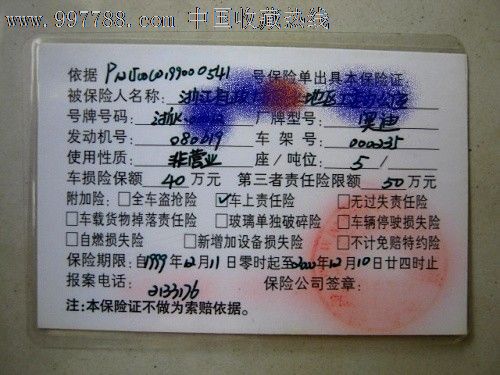 www.997788.com 中国收藏热线
依据 号保险单出具本保险证
被保险人名称: 浙江 地区
号牌号码: 浙 厂牌型号: 奥迪
发动机号: 080219 车架号: 000235
使用性质: 非营业 座/吨位: 5/
车损险保额 40 万元 第三者责任险限额 50 万元
附加险: □全车盗抢险 ☑车上责任险 □无过失责任险
□车载货物掉落责任险 □玻璃单独破碎险 □车辆停驶损失险
□自燃损失险 □新增加设备损失险 □不计免赔特约险
保险期限: 自1999年12月11日零时起至2000年12月10日廿四时止
报案电话: 2133176 保险公司签章:
注:本保险证不做为索赔依据。